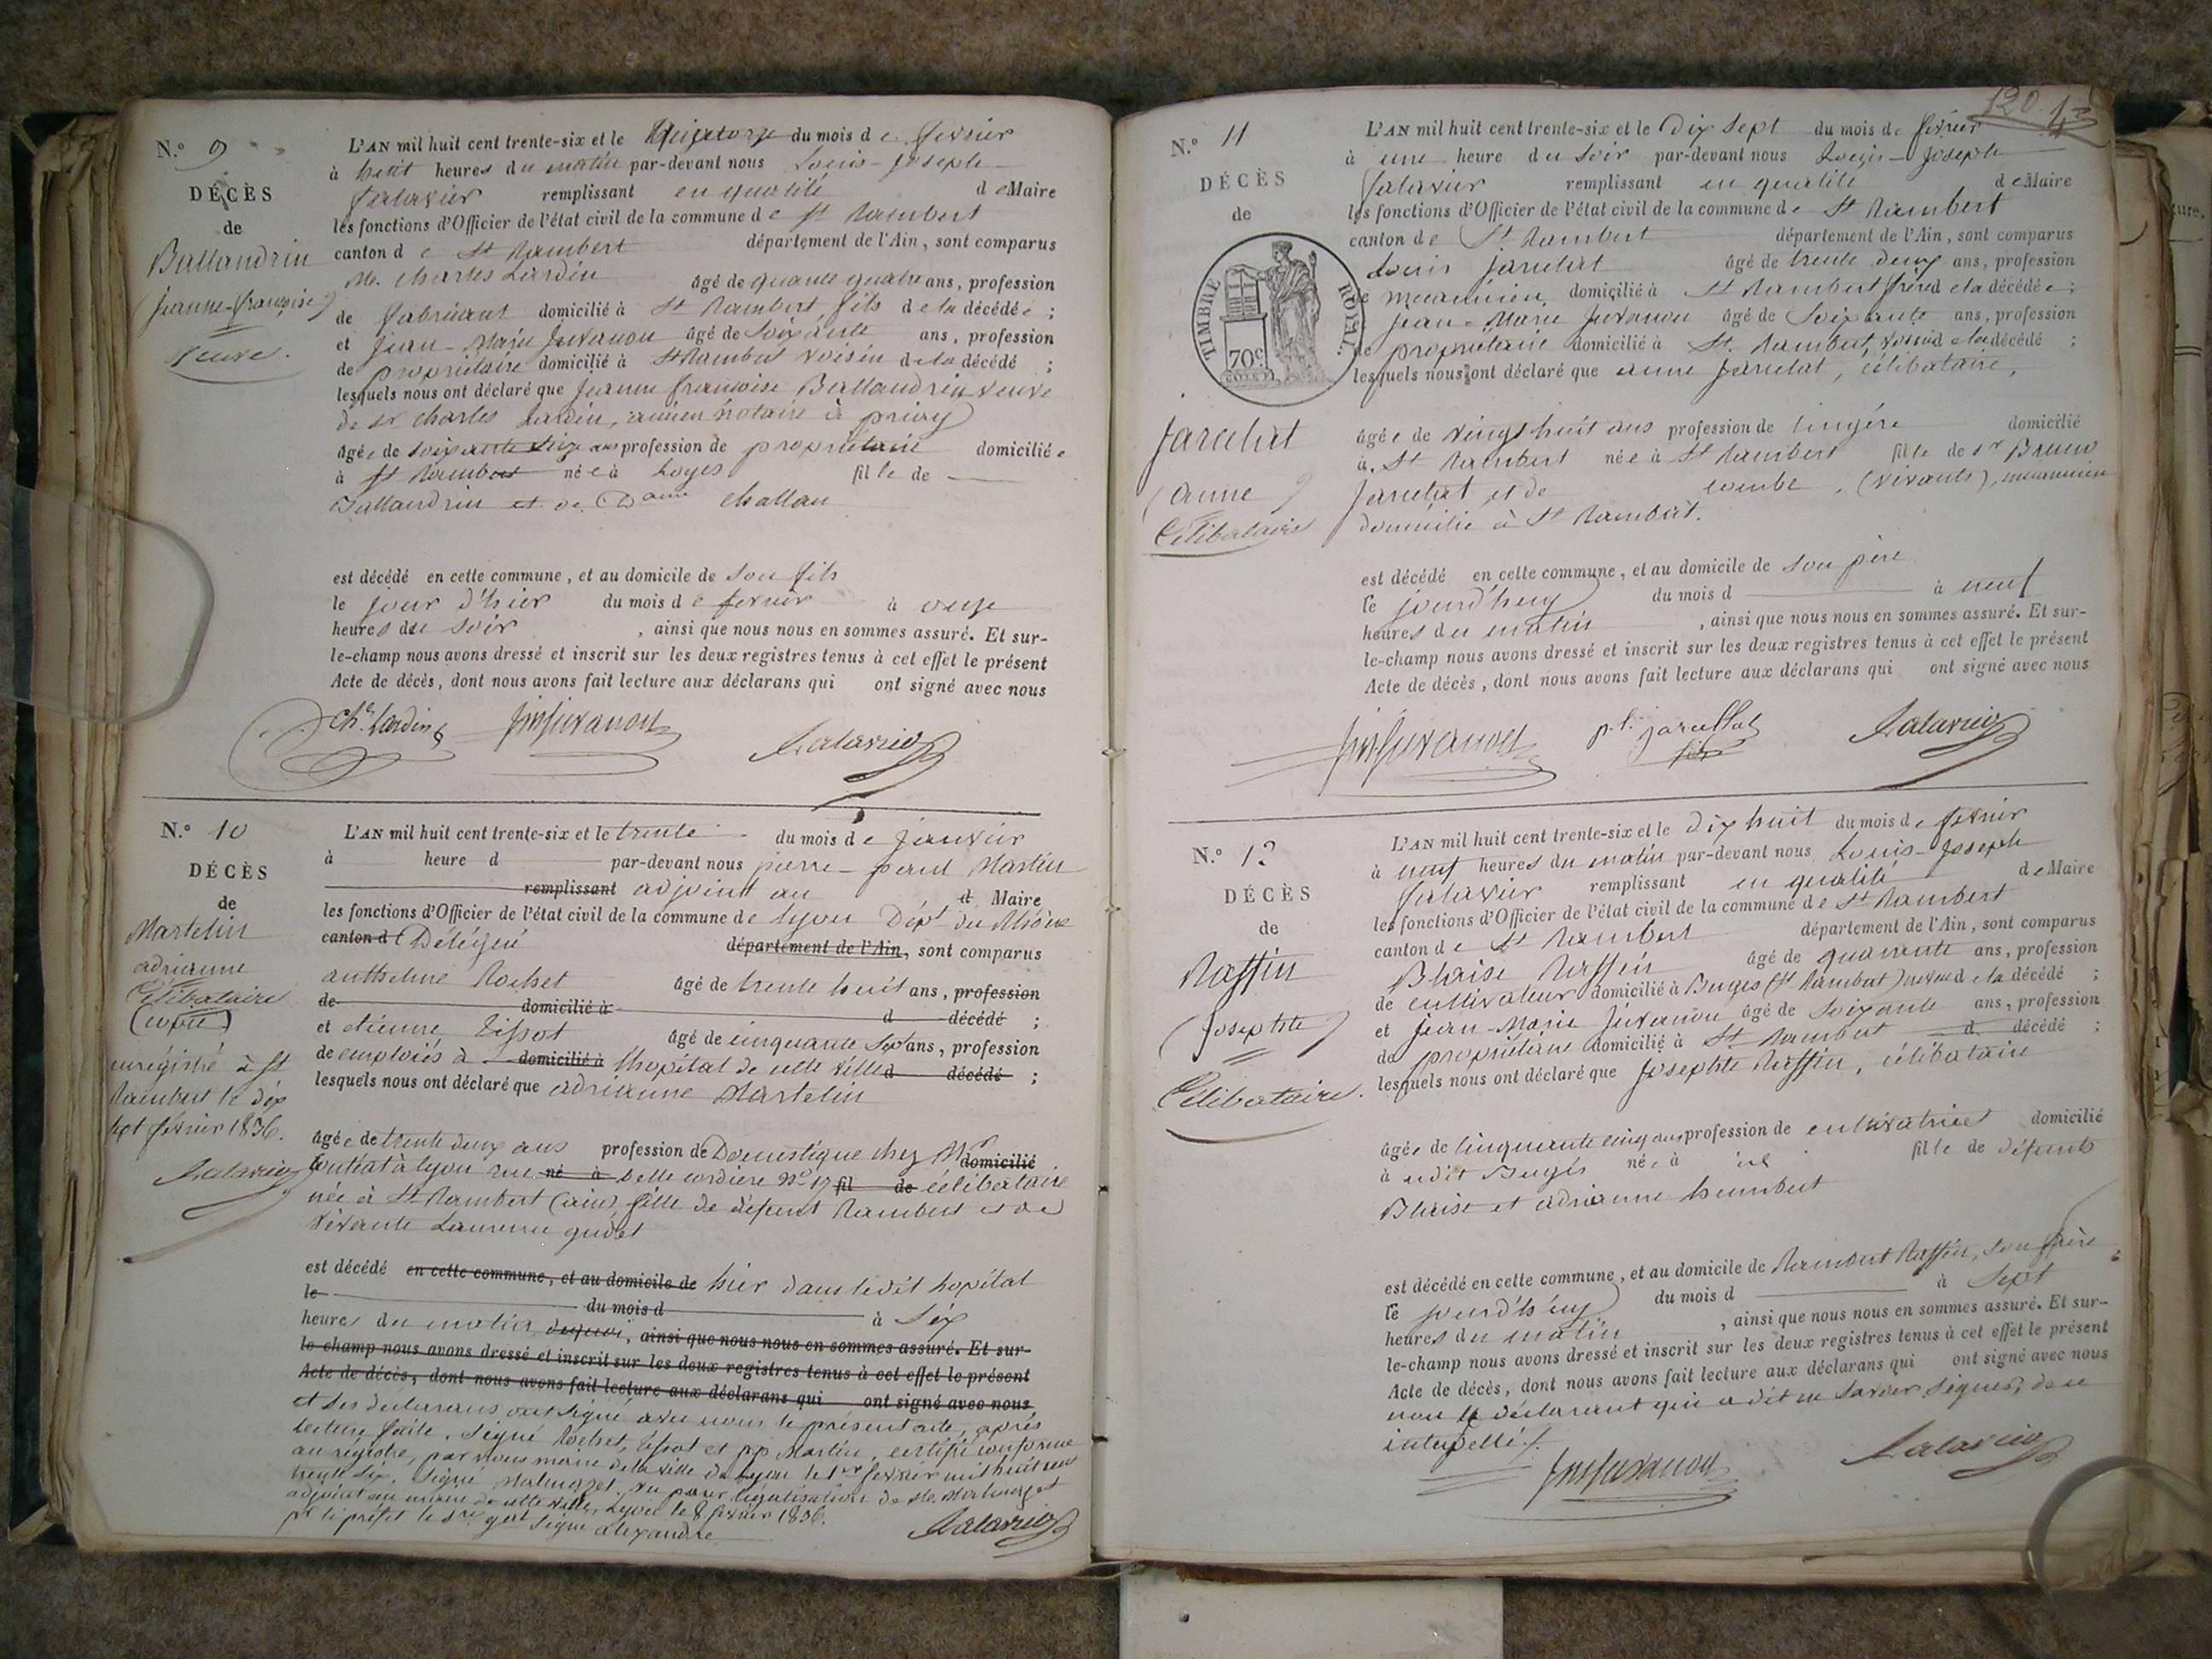 N.° 9
DÉCÈS
de
Ballandrin
(jeanne-françoise)
veuve.
L'AN mil huit cent trente-six et le quatorze du mois de février
à huit heures du matin par-devant nous Louis-Joseph
falavier remplissant en qualité de Maire
les fonctions d'Officier de l'état civil de la commune de St Rambert
canton de St Rambert département de l'Ain, sont comparus
Mr. Charles Lardin âgé de quante quatre ans, profession
de fabricant domicilié à St Rambert, fils de la décédée ;
et Jean-Marie Juvanon âgé de soixante ans, profession
de propriétaire domicilié à St Rambert voisin de la décédé ;
lesquels nous ont déclaré que Jeanne françoise Ballandrin veuve
de sr Charles Lardin, ancien notaire à priay
âgée de soixante seize ans profession de propriétaire domiciliée
à St Rambert née à Loyes fille de
Ballandrin et de Dame Chatlan
est décédé en cette commune, et au domicile de son fils
le jour d'hier du mois de fevrier à onze
heures du soir , ainsi que nous nous en sommes assuré. Et sur-
le-champ nous avons dressé et inscrit sur les deux registres tenus à cet effet le présent
Acte de décès, dont nous avons fait lecture aux déclarans qui ont signé avec nous
Chs Lardin JmJuvanon falavier
N.° 10
DÉCÈS
de
Martelin
adrianne
Célibataire
(copie)
enrégistré à St
Rambert le dix
sept février 1836.
falavier
L'AN mil huit cent trente-six et le trente du mois de janvier
à heure d par-devant nous pierre-paul Martin
remplissant adjoint au d Maire
les fonctions d'Officier de l'état civil de la commune de Lyon Dépt du Rhône
canton d Délégué département de l'Ain, sont comparus
anthelme Rochet âgé de trente huit ans, profession
de domicilié à d décédé ;
et etienne Tissot âgé de cinquante sept ans, profession
de emploiés à domicilié à l'hopital de cette ville d décédé ;
lesquels nous ont déclaré que adrianne Martelin
âgée de trente deux ans profession de Domestique chez Mr domicilié
à Lyon rue né à belle cordière No 17 fil de célibataire
née à St Rambert (ain) fille de défunt Rambert et de
vivante Laurence gudet
est décédé en cette commune, et au domicile de hier dans ledit hopital
le du mois d à six
heures du matin , ainsi que nous nous en sommes assuré. Et sur-
le champ nous avons dressé et inscrit sur les deux registres tenus à cet effet le présent
Acte de décès, dont nous avons fait lecture aux déclarans qui ont signé avec nous
et les déclarans ont signé avec nous le présent acte, après
lecture faite. Signé Rochet, Tissot et pp Martin, certifié conforme
au régistre, par nous maire de la ville de Lyon le 1er fevrier mil huit cent
trente six. Signé vu pour légalisation de Mr.
adjoint au maire de cette ville, Lyon le 8 février 1836.
pr le préfet le sre gal signé alexandre
falavier
120
N.° 11
DÉCÈS
de
TIMBRE ROYAL.
70c
Jarcelat
(anne)
Célibataire
L'AN mil huit cent trente-six et le dix sept du mois de février
à une heure du soir par-devant nous Louis-Joseph
falavier remplissant en qualité de Maire
les fonctions d'Officier de l'état civil de la commune de St Rambert
canton de St Rambert département de l'Ain, sont comparus
Louis Jarcelat âgé de trente deux ans, profession
de mecanicien domicilié à St Rambert frère de la décédée ;
et Jean-Marie Juvanon âgé de soixante ans, profession
de propriétaire domicilié à St. Rambert, voisin de la décédé ;
lesquels nous ont déclaré que anne Jarcelat, célibataire,
âgée de vingt huit ans profession de lingére domicilié
à St Rambert née à St Rambert fille de sr Bruno
Jarcelat et de combe, (vivants), mecanicien
domicilié à St Rambert.
est décédé en cette commune, et au domicile de son père
le jourd'huy du mois d à neuf
heures du matin , ainsi que nous nous en sommes assuré. Et sur-
le-champ nous avons dressé et inscrit sur les deux registres tenus à cet effet le présent
Acte de décès, dont nous avons fait lecture aux déclarans qui ont signé avec nous
JmJuvanon falavier
N.° 12
DÉCÈS
de
Raffin
(Josephte)
Célibataire.
L'AN mil huit cent trente-six et le dix huit du mois de fevrier
à neuf heures du matin par-devant nous Louis-Joseph
falavier remplissant en qualité de Maire
les fonctions d'Officier de l'état civil de la commune de St Rambert
canton de St Rambert département de l'Ain, sont comparus
Blaise Raffin âgé de quarante ans, profession
de cultivateur domicilié à Buges (St Rambert) neveu de la décédé ;
et Jean-Marie Juvanon âgé de soixante ans, profession
de propriétaire domicilié à St Rambert d décédé ;
lesquels nous ont déclaré que Josephte Raffin, célibataire
âgée de cinquante cinq ans profession de cultivatrice domicilié
à udit Buges née à id fille de défunts
Blaise et adrianne humbert
est décédé en cette commune, et au domicile de Rambert Raffin, son frère
le jourd'huy du mois d à sept
heures du matin , ainsi que nous nous en sommes assuré. Et sur-
le-champ nous avons dressé et inscrit sur les deux registres tenus à cet effet le présent
Acte de décès, dont nous avons fait lecture aux déclarans qui ont signé avec nous
non le déclarant qui a dit ne savoir signer, de ce
interpellé.
JmJuvanon falavier